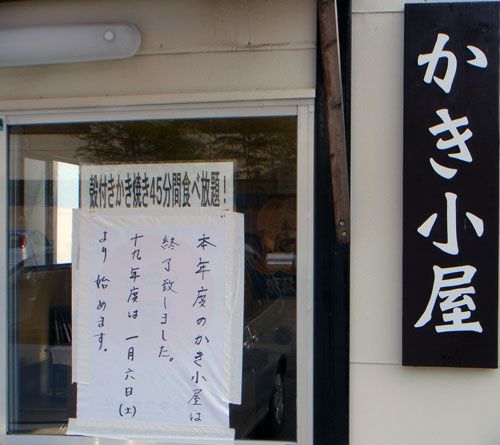 かき小屋
殻付きかき焼き45分間食べ放題！
本年度のかき小屋は
終了致しました。
十九年度は一月六日(土)
より始めます。